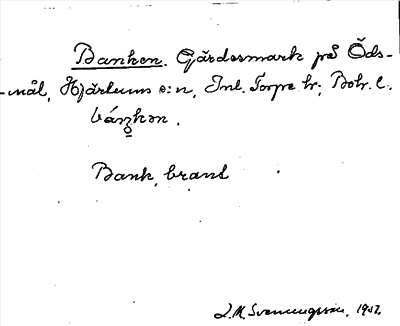 Banken. Gärdesmark på Öds-
-mål, Hjärtums s:n, Inl. Torpe hr; Boh. l.
Bank, brant
J. M. Svenningsson, 1927.